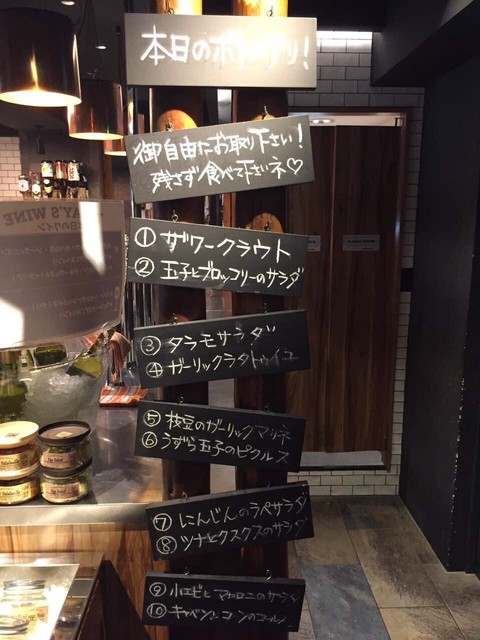 本日の
御自由にお取り下さい!
残さず食べて下さいネ♡
① ザワークラウト
② 玉子とブロッコリーのサラダ
③ タラモサラダ
④ ガーリックラタトゥイユ
⑤ 枝豆のガーリックマリネ
⑥ うずら玉子のピクルス
⑦ にんじんのラペサラダ
⑧ ツナとクスクスのサラダ
⑨ 小エビとマカロニのサラダ
⑩ キャベツとコーンのコールスロー
WINE